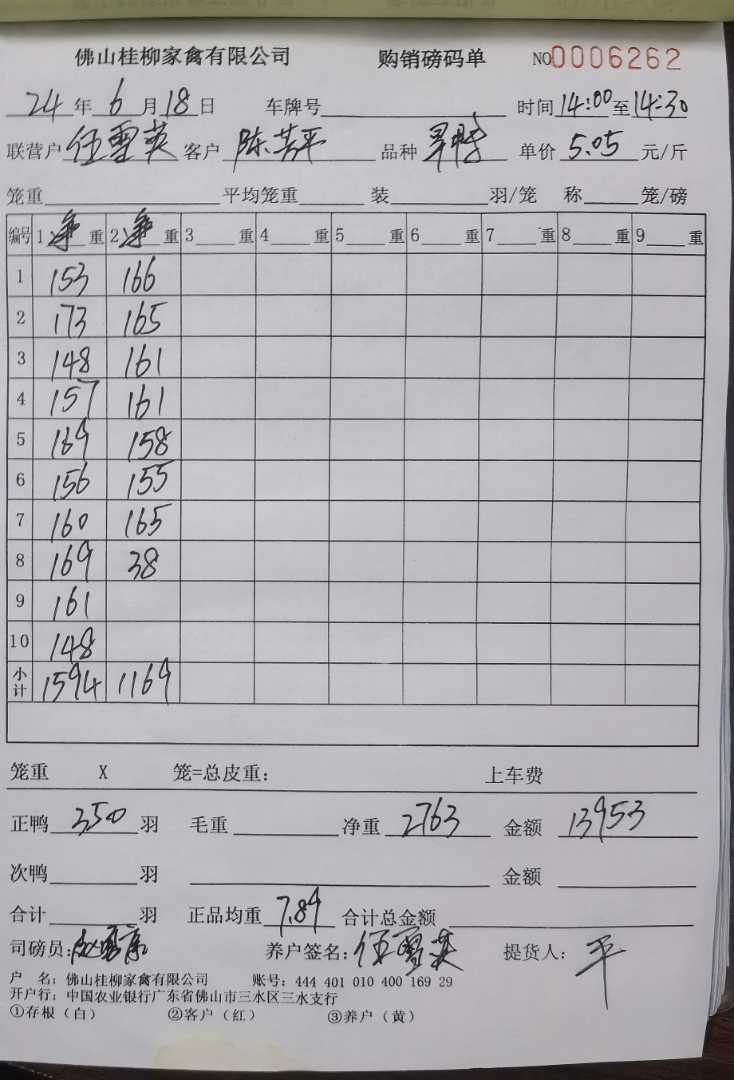 佛山桂柳家禽有限公司 购销磅码单 NO0006262
24年6月18日 车牌号 时间14:00至14:30
联营户伍雪英 客户陈芳平 品种 单价5.05元/斤
笼重 平均笼重 装 羽/笼 称 笼/磅
编号 1净重 2净重 3 重 4 重 5 重 6 重 7 重 8 重 9 重
1 153 166
2 173 165
3 148 161
4 157 161
5 169 158
6 156 155
7 160 165
8 169 38
9 161
10 148
小计 1594 1169
笼重 X 笼=总皮重: 上车费
正鸭350羽 毛重 净重2763 金额13953
次鸭 羽 金额
合计 羽 正品均重7.89 合计总金额
司磅员: 养户签名:伍雪英 提货人:平
户 名:佛山桂柳家禽有限公司 账号:444 401 010 400 169 29
开户行:中国农业银行广东省佛山市三水区三水支行
①存根(白) ②客户(红) ③养户(黄)